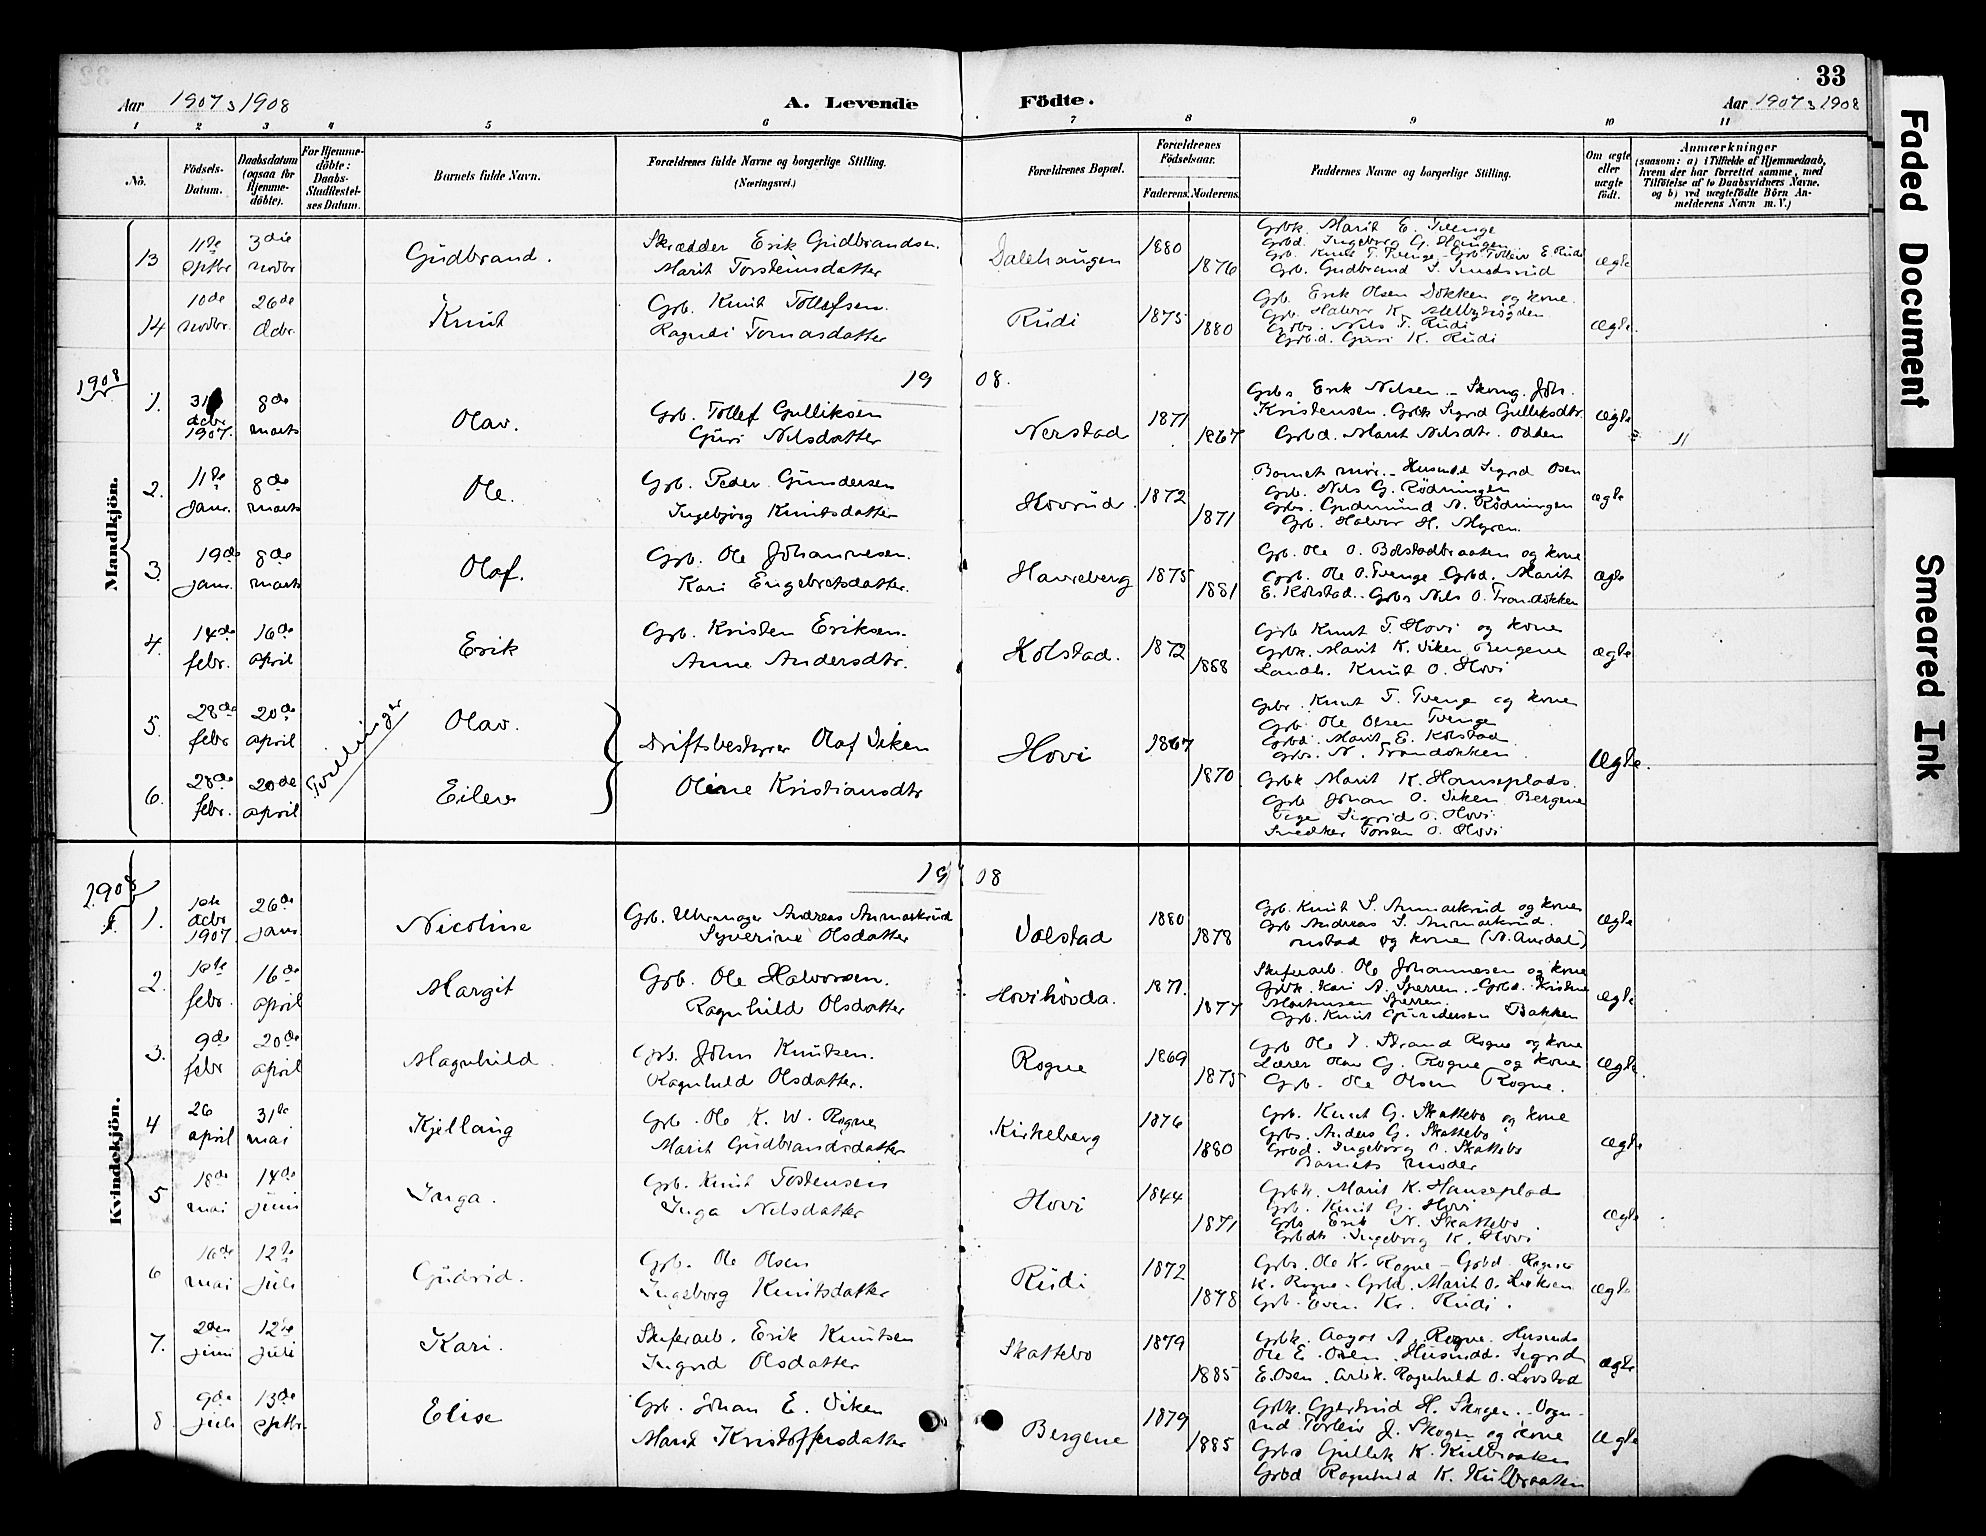 33
Aar 1907 & 1908
A. Levende Födte.
Aar 1907 & 1908
1 2 3 4 5 6 7 8 9 10 11
No.
Födsels-Datum.
Daabsdatum (ogsaa for Hjemme-döbte).
For Hjemme-döbte: Daabs-Stadfæstel-ses Datum.
Barnets fulde Navn.
Forældrenes fulde Navne og borgerlige Stilling.
(Næringsvei.)
Forældrenes Bopæl.
Forældrenes Födselsaar.
Faderens. Moderens.
Faddernes Navne og borgerlige Stilling.
Om ægte eller uægte födt.
Anmærkninger
(saasom: a) i Tilfælde af Hjemmedaab,
hvem der har forrettet samme, med
Tilföielse af to Daabsvidners Navne,
og b) ved uægtefödte Börn An-
melderens Navn m. V.)
Mandkjön.
13 11te septbr 3die novbr Gudbrand. Skrædder Erik Gudbrandsen. Marit Torsteinsdatter Dalehaugen 1880 1876
Grbk. Marit E. Tvenge
Grbd. Ingeborg G. Haugen
Grb. Knut T. Tvenge - Grb. Tollev E. Rudi
Grb. Gudbrand
ægte
14 10de novbr. 26de dcbr. Knut Grb. Knut Tollefsen. Ragndi Tomasdatter Rudi 1875 1880
Grb. Erik Olsen Dokken og kone.
Grb. Halvor K. Melbyhögden
Grbs. Nils T. Rudi
Grbd. Guri K. Rudi
ægte.
1908
19 08.
1. 31 dcbr 1907. 8de marts Olav. Grb. Tollef Gulliksen Guri Nilsdatter Nerstad 1871 1867
Grbs Erik Nilsen - Skomg. Joh.
Kristensen. Grbk Sigrid Gulliksdtr
Grbd. Marit Nilsdtr. Odden
ægte
2. 11te janr. 8de marts Ole. Grb. Peder Gundersen Ingebjörg Knutsdatter Hovrud 1872 1871
Barnets mor. - Husmd Sigrid Osen
Grb. Nils G. Rödningen
Grbs. Gudmund N. Rödningen
Grb. Halvor H. Myren
ægte
3. 19de janr. 8de marts Olaf. Grb. Ole Johannesen. Kari Engebretsdatter. Havreberg 1875 1881
Grb. Ole O. Bolstadbraaten og kone
Grb. Ole O. Tvenge - Grbd. Marit
E. Kolstad. - Grbs Nils O. Trandokken
ægte
4. 14de febr. 16de april Erik Grb. Kristen Eriksen. Anne Andersdtr. Kolstad. 1872 1868
Grb Knut T. Hovi og kone
Grbk. Marit K. Viken Bergene
Landh. Knut O. Hovi
ægte
Tvillinger
5. 28de febr 20de april Olav.
6. 28de febr. 20de april Eilev
Driftsbestyrer Olaf Viken
Oline Kristiansdtr
Hovi 1867 1870
Grbr. Knut T. Tvenge og kone
Grb. Ole Olsen Tvenge
Grbd. Marit E. Kolstad
Grbs. N. Trandokken
Grbk Marit K. Hanseplads.
Grb Johan O. Viken Bergene
Pige Sigrid O. Hovi
Snedker Torsten O. Hovi
ægte.
Kvindekjön.
1908
19 08
1. dcbr 1907 26de janr Nicoline Grb. Uhrmager Andreas Anmarkrud Syverine Olsdatter Volstad 1880 1878
Grb. Knut S. Anmarkrud og kone
Grb Andreas S. Anmarkrud.
og kone (N. Aurdal)
ægte
2. febr. 16de april Margit Grb. Ole Halvorsen. Ragnhild Olsdatter Hovihövda. 1871. 1877
Skiferarb. Ole Johannesen og kone
Grbk. Kari A. Sperren. - Grbd. Kristine
Martinusen Sperren.
Grb. Knut Gundersen Bakken
ægte
3. 9de febr 20de april Magnhild. Grb. John Knutsen. Ragnhild Olsdatter. Rogne 1869 1875
Grb Ole I. Strand Rogne og kone
Lærer Olav G. Rogne og kone
Grb. Ole Olsen Rogne.
ægte.
4 26 april 31te mai Kjellaug Grb. Ole K. W. Rogne Marit Gudbrandsdatter Kirkeberg 1876 1880
Grb. Knut G. Skattebo og kone
Grbs. Anders G. Skattebo
Grbd. Ingeborg O. Skattebo
Barnets moder
ægte
5 18de mai 14de juni Inga. Grb. Knut Tostensen Inga Nilsdatter Hovi 1844 1871
Grbk. Marit K. Hanseplads
Grb. Knut G. Hovi
Grbs Erik N. Skattebo.
Grbdtr Ingeborg K. Hovi
ægte
6 16de mai 12te juli Gudrid. Grb. Ole Olsen Ingeborg Knutsdatter Rudi 1872 1878
Grbs. Ole K. Rogne - Grbd Ragndi
K. Rogne. Grbk. Marit O. Lieken
Grb. Even Kr. Rudi.
ægte
7. 2den juni 12te juli Kari. Skiferarb. Erik Knutsen Ingrid Olsdatter Skattebo 1879 1885
Grbk. Aagot A. Rogne. Husmds
Ole E. Osen. Husmdd. Sigrid
E. Osen. Arbk. Ragnhild O. Lovstad
ægte
8 9de juli 13de septbr. Elise Grb. Johan E. Viken Marit Kristoffersdatter Bergene 1879 1885
Grbk. Gjertrud H. Skogen. - Vogn-
md Torleiv J. Skogen og kone
Grbs Gullik K. Kulbraaten
Grbd Ragnhild K. Kulbraaten
ægte
Faded Document
Smeared Ink